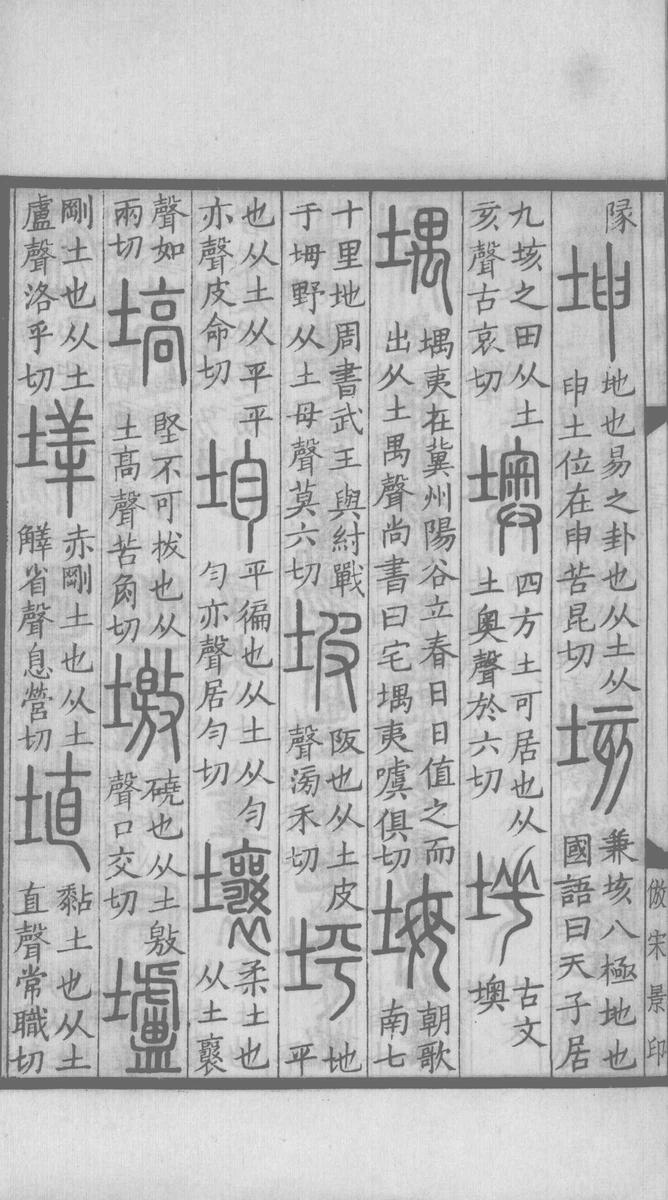 倣宋景印
隊
坤
地也易之卦也从土从
申土位在申苦昆切
垓
兼垓八極地也
國語曰天子居
九垓之田从土
亥聲古哀切
墺
四方土可居也从
土奥聲於六切
古文
墺
堣
堣夷在冀州陽谷立春日日值之而
出从土禺聲尚書曰宅堣夷噳俱切
坶
朝歌
南七
十里地周書武王與紂戰
于坶野从土母聲莫六切
坡
阪也从土皮
聲滂禾切
坪
地
平
也从土从平平
亦聲皮命切
均
平徧也从土从匀
匀亦聲居匀切
壤
柔土也
从土襄
聲如
兩切
塙
堅不可拔也从
土高聲苦角切
墽
磽也从土敫
聲口交切
壚
剛土也从土
盧聲洛乎切
垟
赤剛土也从土
觲省聲息營切
埴
黏土也从土
直聲常職切